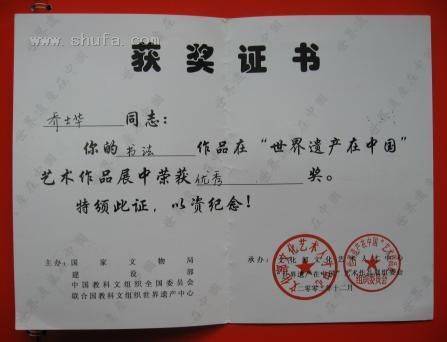 www.shufa.com
获奖证书
乔士华 同志：
你的 书法 作品在“世界遗产在中国”
艺术作品展中荣获 优秀 奖。
特颁此证，以资纪念！
主办：国家文物局
建设部
中国教科文组织全国委员会
联合国教科文组织世界遗产中心
承办：
十二月